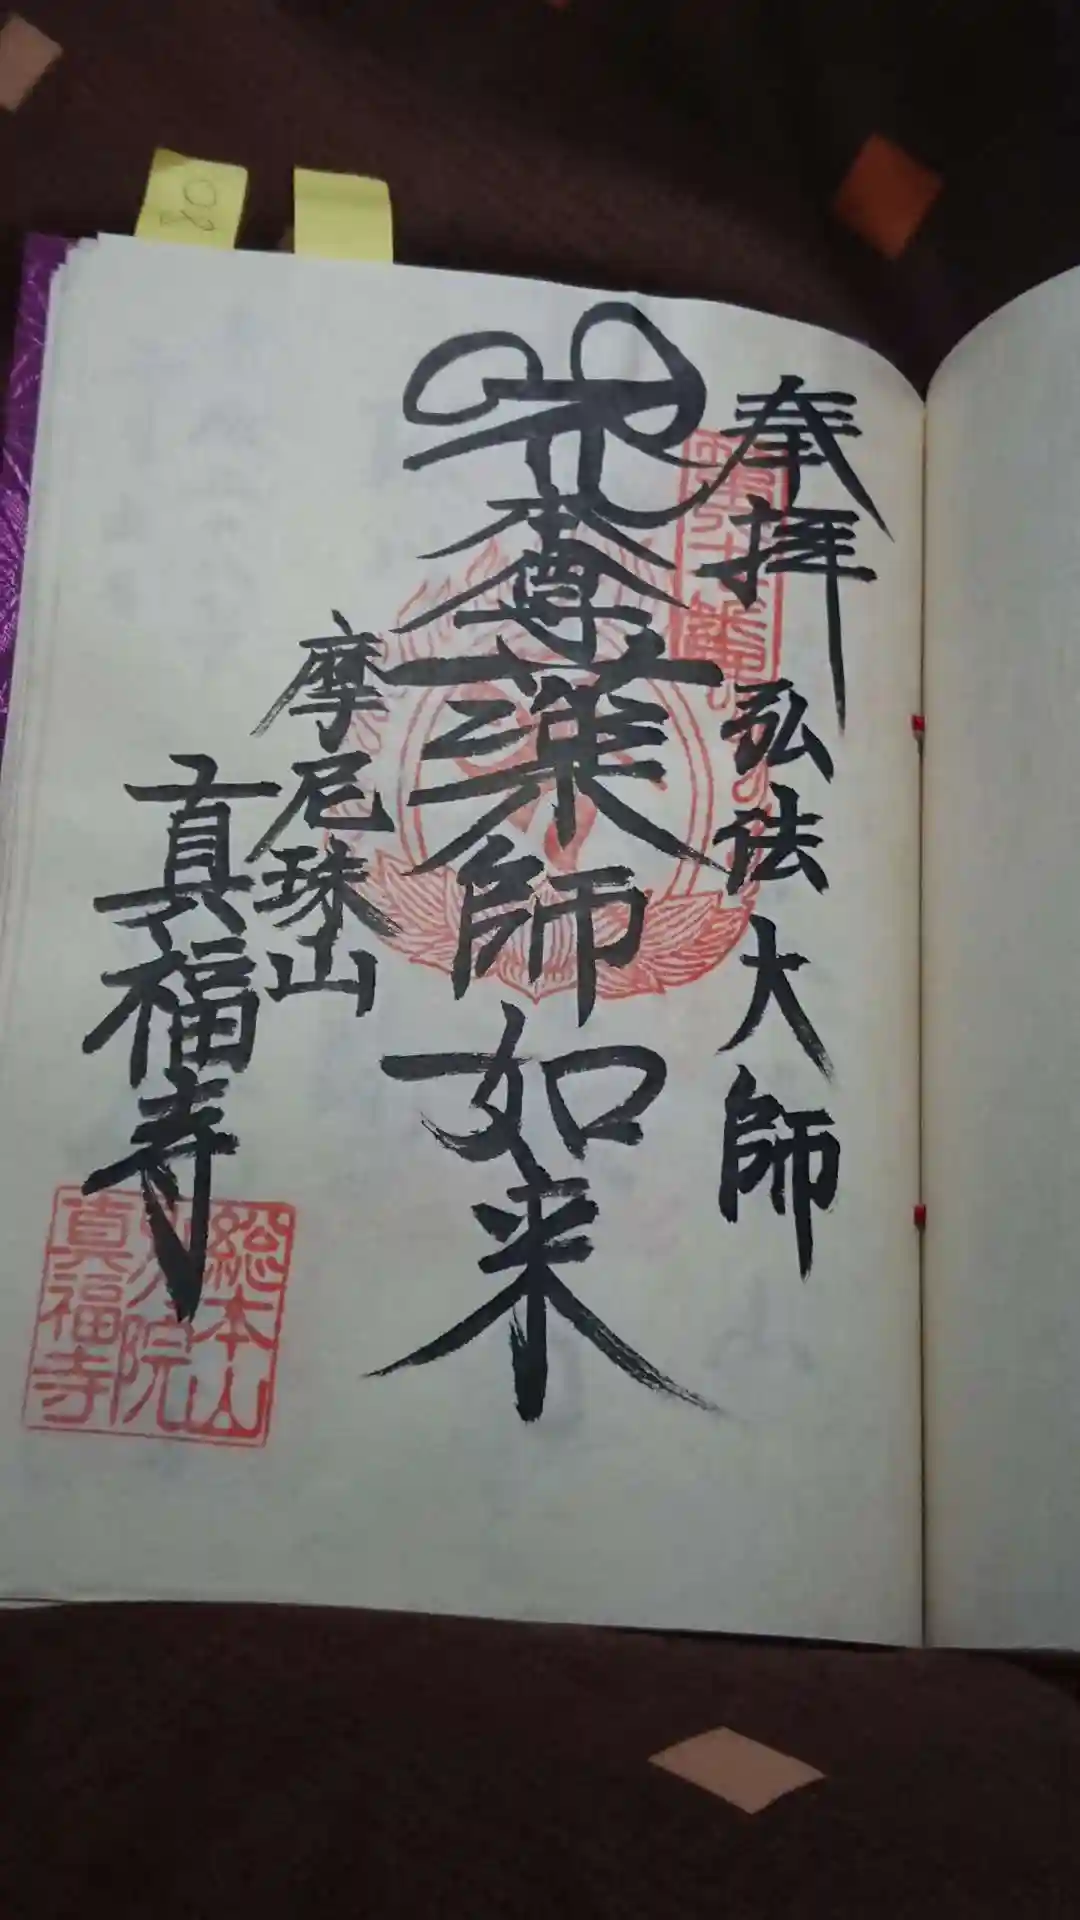 奉拝
弘法大師
本尊
薬師如来
摩尼珠山
真福寺
総本山
別院
真福寺